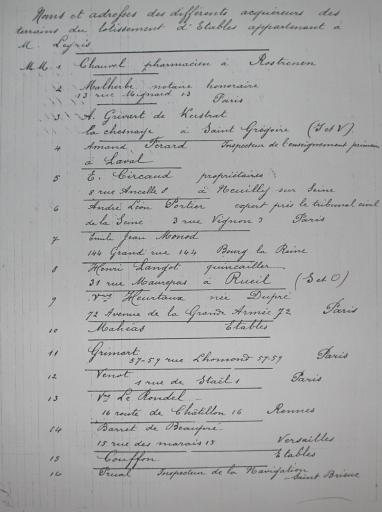 Noms et adresses des différents acquéreurs des
terrains du lotissement d'Etables appartenant à
M. Legris
M.M. 1 Chauvel pharmacien à Rostrenen
2 Malherbe notaire honoraire
13 rue Mignard 13 Paris
3 A. Grivert de Kerstrat
la chesnaye à Saint Grégoire (I et V)
4 Amand Ferard Inspecteur de l'enseignement primaire
à Laval
5 E. Circaud propriétaires
8 rue Ancelle 8 à Neuilly sur Seine
6 André Léon Portier expert près le tribunal civil
de la Seine 3 rue Vignon 3 Paris
7 Emile Jean Monod
144 Grand rue 144 Bourg la Reine
8 Henri Langot quincailler
31 rue Maurepas à Rueil (S et O)
9 Vve Heurtaux née Dupré
72 Avenue de la Grande Armée 72 Paris
10 Mahéas Etables
11 Grimort
57-59 rue Lhomond 57-59 Paris
12 Venot
1 rue de Staël 1 Paris
13 Vve Le Rondel
16 route de Châtillon 16 Rennes
14 Barret de Beaupré
15 rue des marais 15 Versailles
15 Couffon Etables
16 Prual Inspecteur de la Navigation
Saint Brieuc